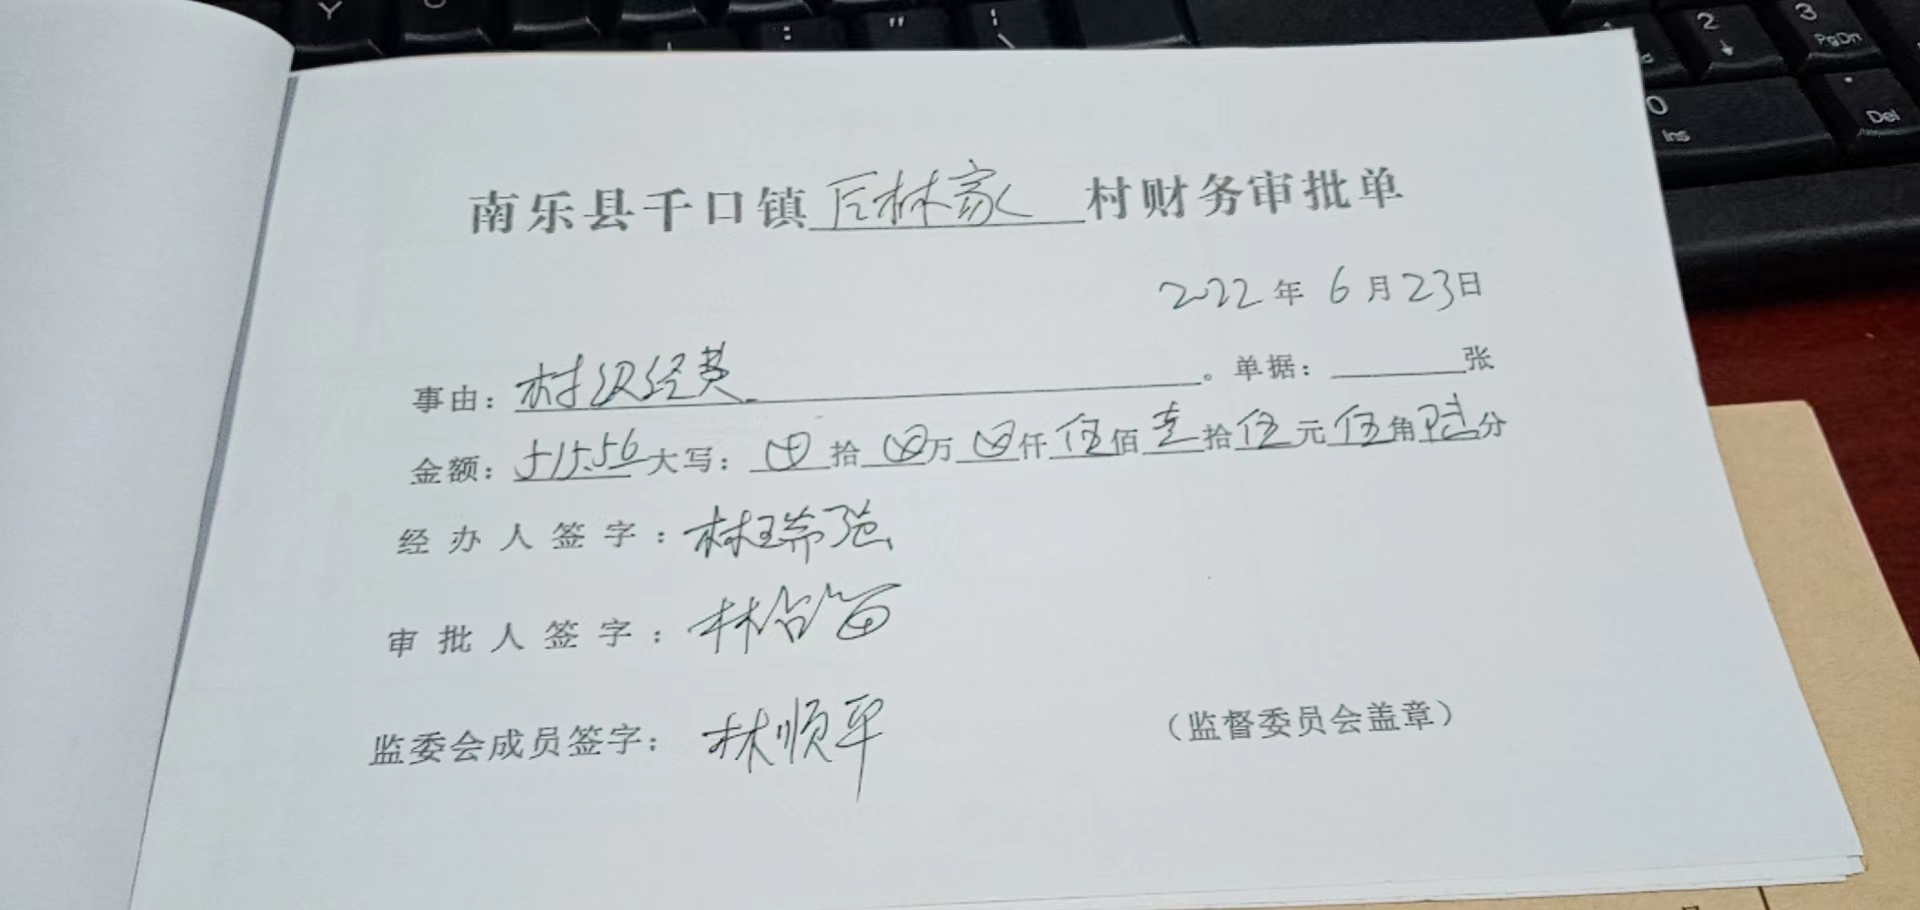 南乐县千口镇后林家村财务审批单
2022年6月23日
事由：村级经费。单据：张
金额：515.56大写：⊗拾⊗万⊗仟伍佰壹拾伍元伍角陆分
经办人签字：林瑞强
审批人签字：林
监委会成员签字：林顺平
（监督委员会盖章）
Y
2
3
PgDn
0
Ins
Del